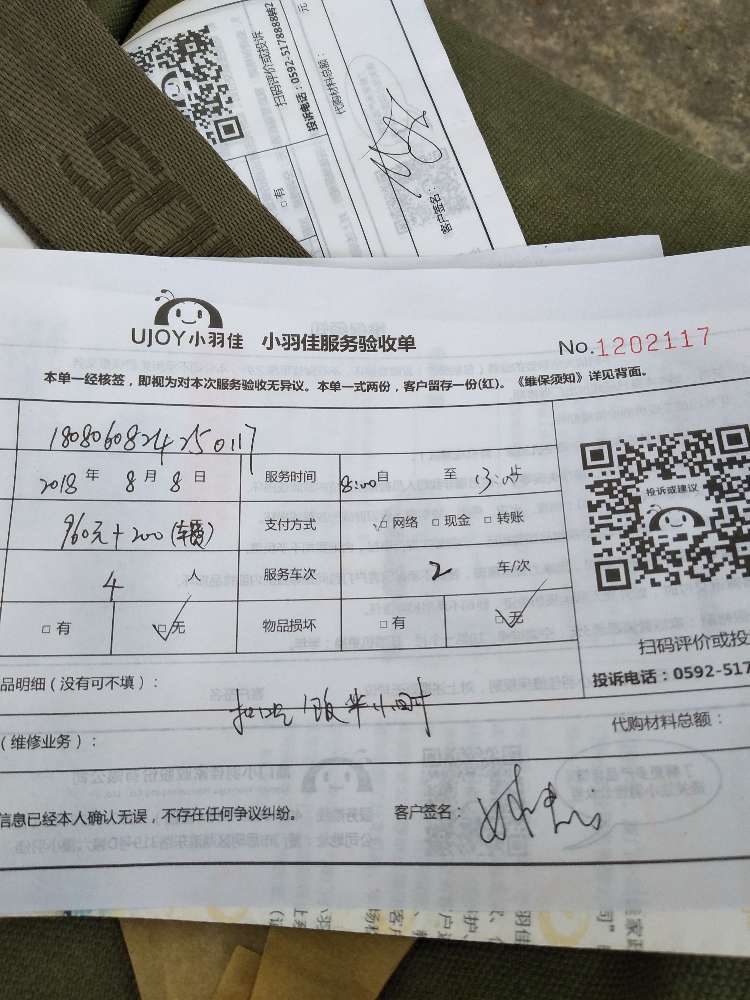 扫码评价或投诉
投诉电话：0592-5178888转2
元
代购材料总额：
□ 有
客户签名：
UJOY小羽佳 小羽佳服务验收单
No.1202117
本单一经核签，即视为对本次服务验收无异议。本单一式两份，客户留存一份(红)。《维保须知》详见背面。
1808060824250117
2018 年 8 月 8 日 服务时间 8:00 自 至 13:05
960元+200（车费） 支付方式 □ 网络 □ 现金 □ 转账
4 人 服务车次 2 车/次
□ 有 □ 无 物品损坏 □ 有 □ 无
投诉或建议
扫码评价或投
投诉电话：0592-517
品明细（没有可不填）：
半小时
代购材料总额：
（维修业务）：
信息已经本人确认无误，不存在任何争议纠纷。 客户签名：